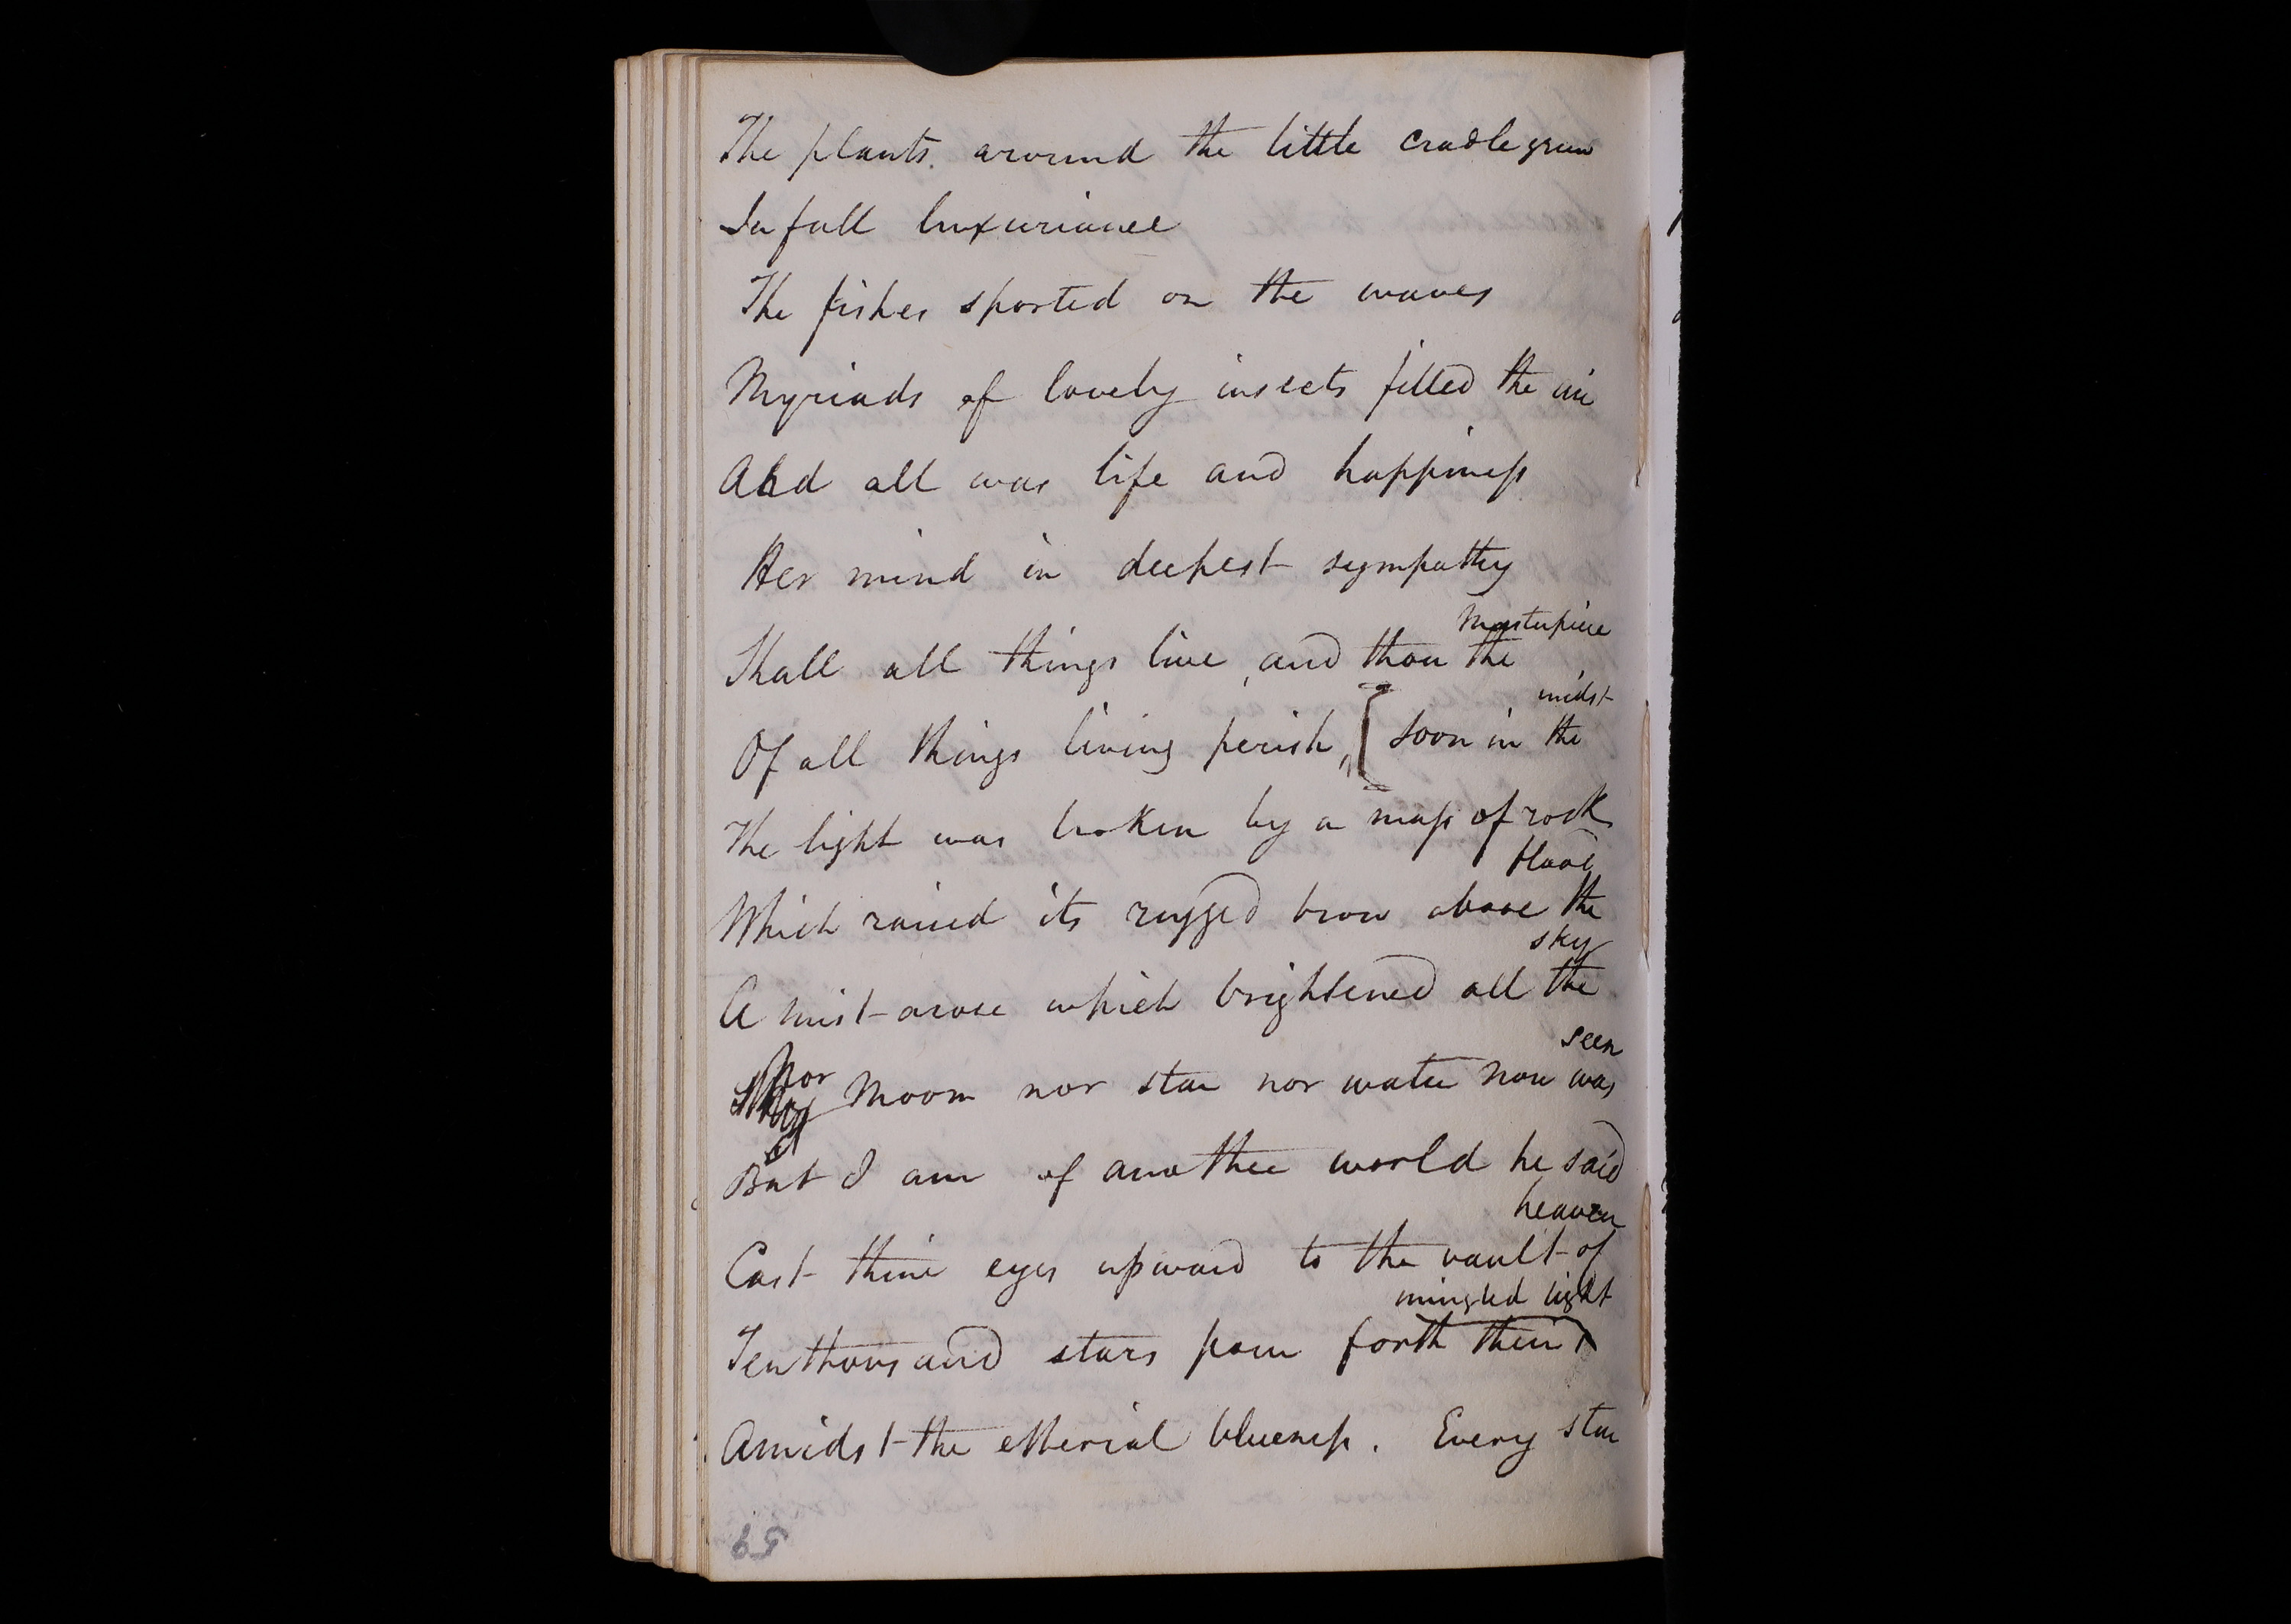 The plants. around the little cradle grew
In full luxuriance
The fishes sported on the waves
Myriads of lovely insects filled the air
And all was life and happiness
Her mind in deepest sympathy
masterpiece
Shall all things live, and thou the
midst
Of all things living perish, [ soon in the
The light was broken by a mass of rock
flood
Which raised its rugged brow above the
sky
A mist arose which brightened all the
seen
Nor Moon nor star nor water now was
But I am of another world he said
heaven
Cast thine eyes upward to the vault of
mingled light
Ten thousand stars pour forth their
Amidst the etherial blueness. Every star
59